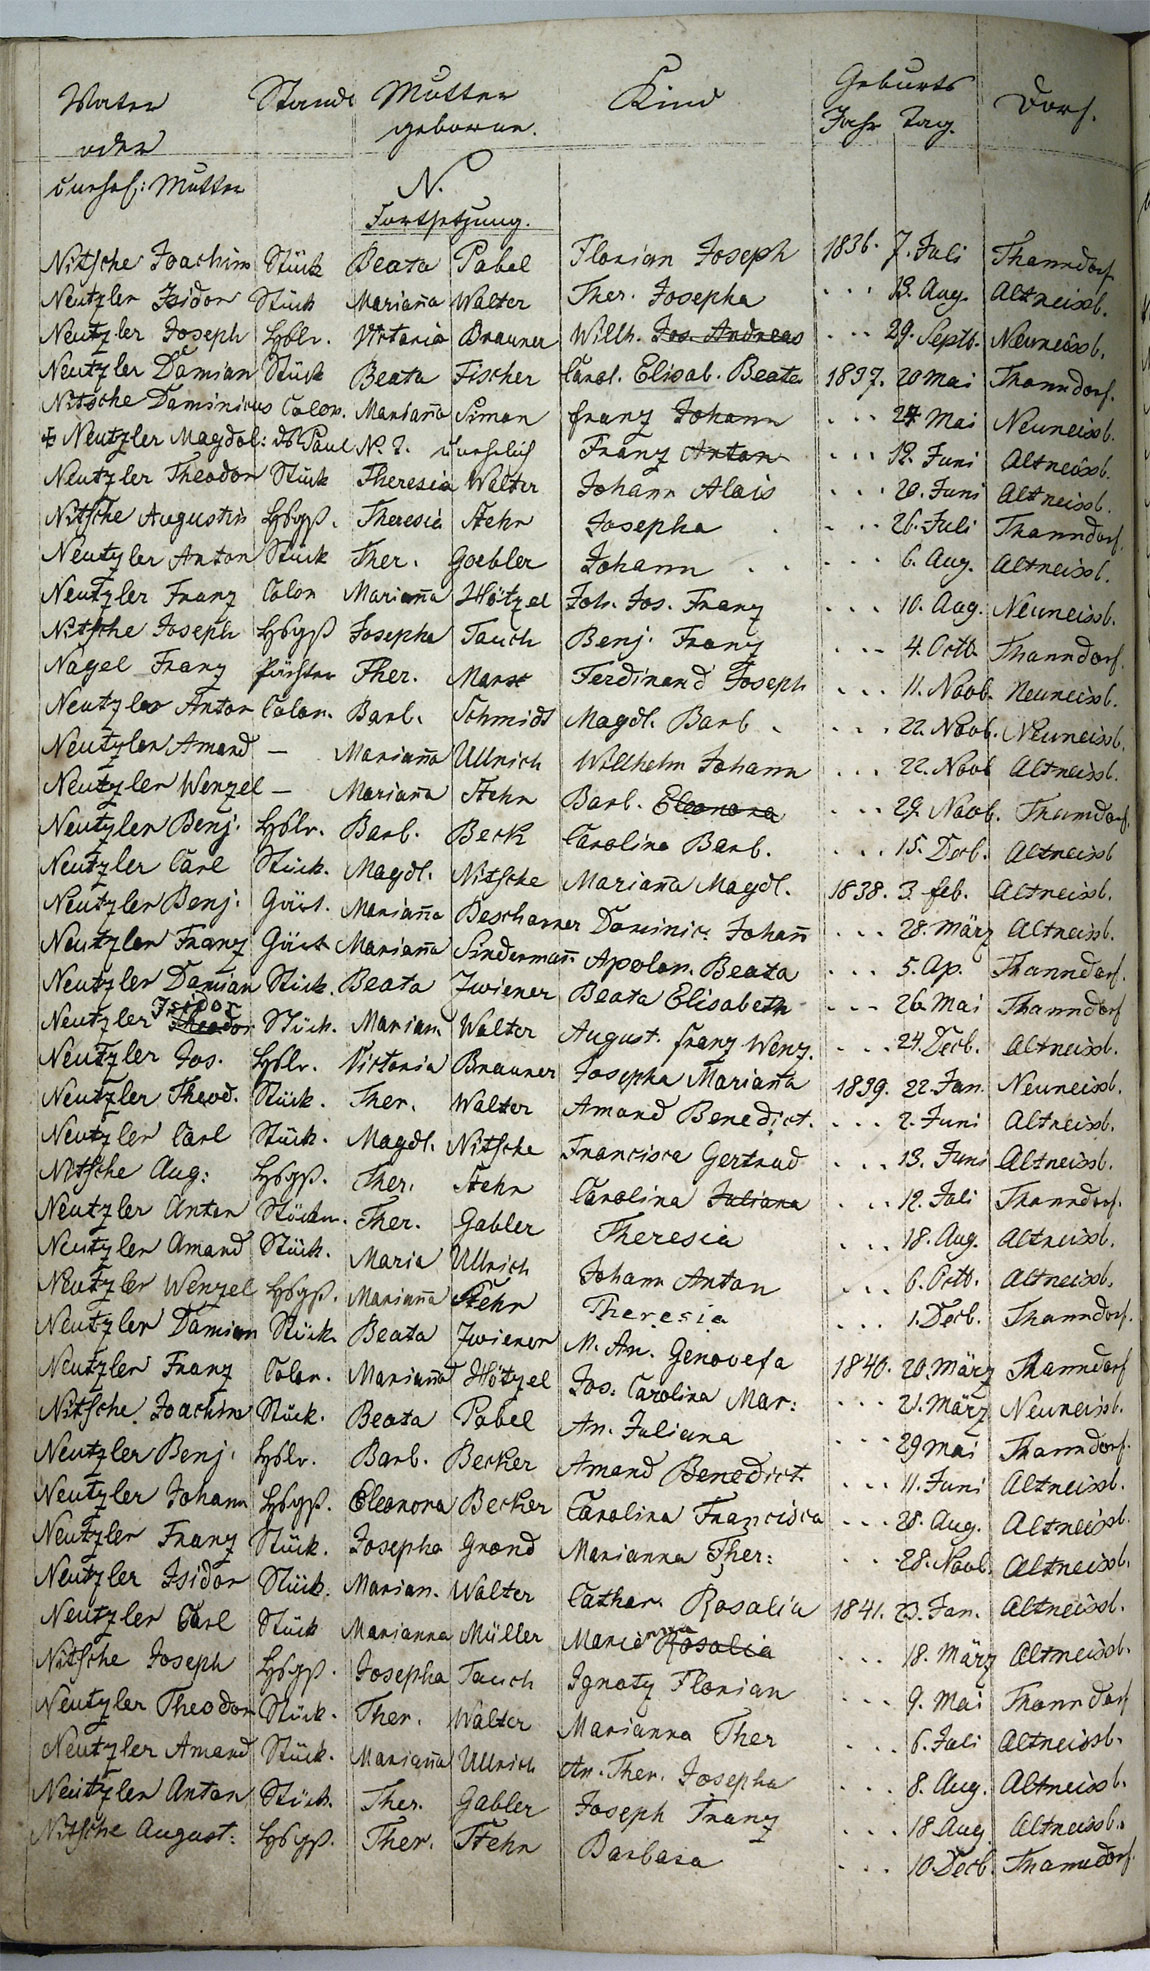 Vater Stand Mutter Kind Geburts Dorf.
oder geborne. Jahr Tag.
unehel: Mutter N.
Fortsetzung.
Nitsche Joachim Stück Beata Pabel Florian Joseph 1836. 7. Juli Thanndorf
Neutzler Isidor Stück Mariana Walter Ther. Josepha . . . 13. Aug. Altneissb.
Neutzler Joseph Hslr. Victoria Brauner Willh. Jos. Andreas . . . 29. Septb. Neuneissb.
Neutzler Damian Stück Beata Fischer Carol. Elisab. Beata 1837. 20 Mai Thanndorf.
Nitsche Dominicus Colon. Mariana Simon Franz Johann . . . 24 Mai Neuneissb.
Neutzler Magdal: Paul No. 7. unehelich Franz Anton . . . 12. Juni Altneissb.
Neutzler Theodor Stück Theresia Walter Johann Alois . . . 20. Juni Altneissb.
Nitsche Augustin Hsgß. Theresia Stehr Josepha . . . 26. Juli Thanndorf.
Neutzler Anton Stück Ther. Goebler Johann . . . 6. Aug. Altneissb.
Neutzler Franz Colon Mariana Hötzel Joh. Jos. Franz . . . 10. Aug. Neuneissb.
Nitsche Joseph Hsgß Josepha Tauch Benj. Franz . . . 4. Octb. Thanndorf.
Nagel Franz Pächter Ther. Marx Ferdinand Joseph . . . 11. Novb. Neuneissb.
Neutzler Anton Colon. Barb. Schmidt Magdl. Barb. . . . 22. Novb. Neuneissb.
Neutzler Amand — Mariana Ullrich Willhelm Johann . . . 22. Novb Altneissb.
Neutzler Wenzel — Mariana Stehr Barb. Eleonora . . . 29. Novb. Thanndorf.
Neutzler Benj. Hslr. Barb. Beck Carolina Barb. . . . 15. Decb. Altneissb
Neutzler Carl Stück. Magdl. Nitsche Mariana Magdl. 1838. 3. Feb. Altneissb.
Neutzler Benj. Gärt. Mariana Bescharner Dominic: Johan . . . 28. März Altneissb.
Neutzler Franz Gärt Mariana Sinderman Apolon. Beata . . . 5. Ap. Thanndorf.
Neutzler Damian Stück. Beata Zwiener Beata Elisabeth . . . 26. Mai Thanndorf
Isidor
Neutzler Theodor Stück. Mariana Walter August. Franz Wenz. . . . 24. Decb. Altneissb.
Neutzler Jos. Hslr. Victoria Brauner Josepha Mariana 1839. 22. Jan. Neuneissb.
Neutzler Theod. Stück. Ther. Walter Amand Benedict. . . . 2. Juni Altneissb.
Neutzler Carl Stück. Magdl. Nitsche Francisca Gertrud . . . 13. Juni Altneissb.
Nitsche Aug: Hsgß. Ther. Stehr Carolina Juliana . . . 12. Juli Thanndorf.
Neutzler Anton Ther. Gabler Theresia . . . 18. Aug. Altneissb.
Neutzler Amand Stück. Maria Ullrich Johann Anton . . . 6. Octb. Altneissb.
Neutzler Wenzel Hsgß. Mariana Stehr Theresia . . . 1. Decb. Thanndorf.
Neutzler Damian Stück. Beata Zwiener M. An. Genovefa 1840. 20. März Thanndorf
Neutzler Franz Colon. Mariana Hötzel Jos: Carolina Mar: . . . 21. März Neuneissb.
Nitsche Joachim Stück. Beata Pabel An. Juliana . . . 29 Mai Thanndorf.
Neutzler Benj. Hslr. Barb. Becker Amand Benedict. . . . 11. Juni Altneissb.
Neutzler Johann Hsgß. Eleonora Becker Carolina Francisca . . . 28. Aug. Altneissb.
Neutzler Franz Stück. Josepha Grond Marianna Ther: . . . 28. Novb. Altneissb.
Neutzler Isidor Stück. Marian. Walter Cathar. Rosalia 1841. 23. Jan. Altneissb.
Neutzler Carl Stück Marianna Müller Marianna Rosalia . . . 18. März Altneissb.
Nitsche Joseph Hsgß. Josepha Tauch Ignatz Florian . . . 9. Mai Thanndorf
Neutzler Theodor Stück. Ther. Walter Marianna Ther . . . 6. Juli Altneissb.
Neutzler Amand Stück. Mariana Ullrich An. Ther. Josepha . . . 8. Aug. Altneissb.
Neutzler Anton Stück. Ther. Gabler Joseph Franz . . . 18 Aug. Altneissb.
Nitsche August: Hsgß. Ther. Stehr Barbara . . . 10. Decb. Thanndorf.